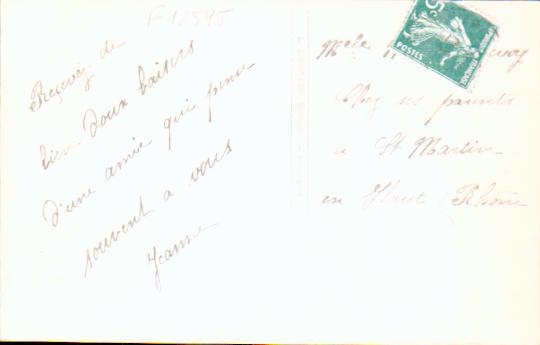 F 12595
Recevez de
bien doux baisers
d'une amie qui pense
souvent a vous
Jeanne
5c
POSTES
Melle
Chez ses parents
a St Martin
en Haut (Rhône